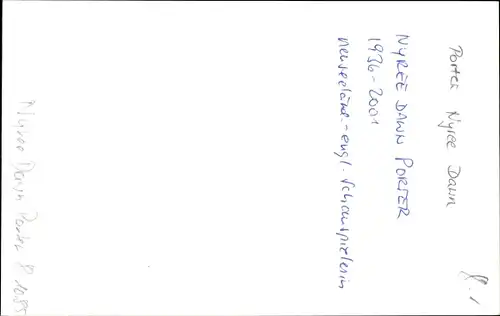 Porter Nyree Dawn
NYREE DAWN PORTER
1936-2001
neuseeländ.-engl. Schauspielerin
Nyree Dawn Porter P 10.85